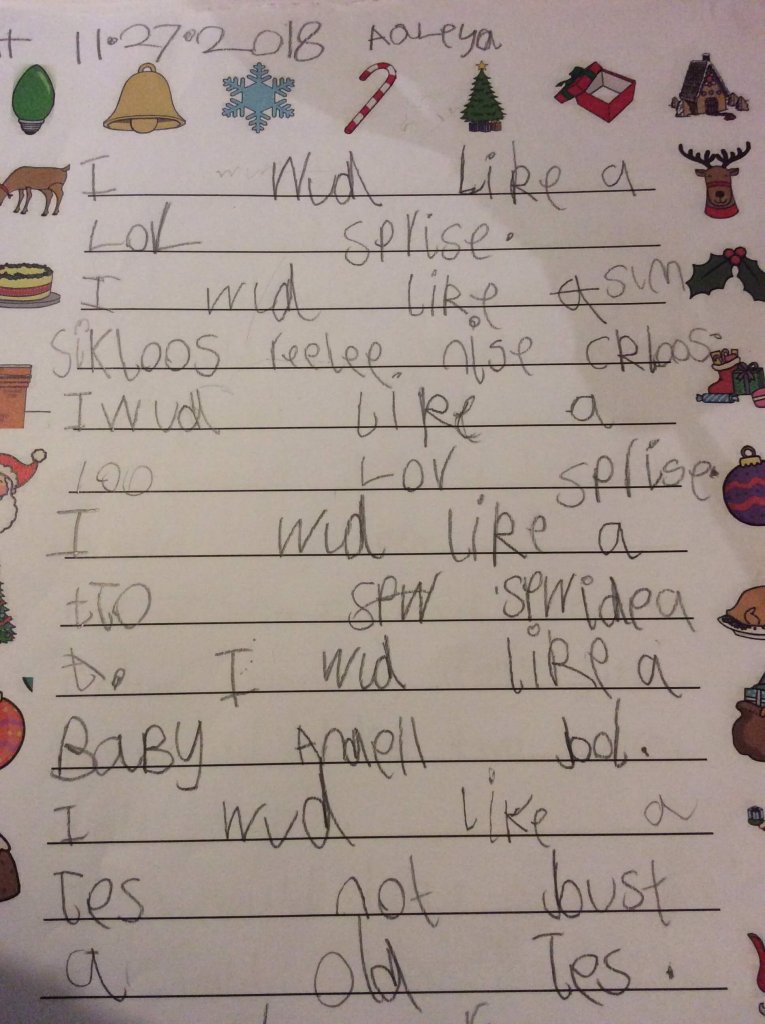 11.27.2018 Aaleya
I wud Like a
LOL sprise.
I wud like a sum
SiKLOOS reelee nise CRLoos.
I wud Like a
100 LOV sprise.
I wud like a
tTO SPW SPWidea
I wid liKe a
BaBY Anaell bol.
I wud like a
Tes not bust
a old Tes.